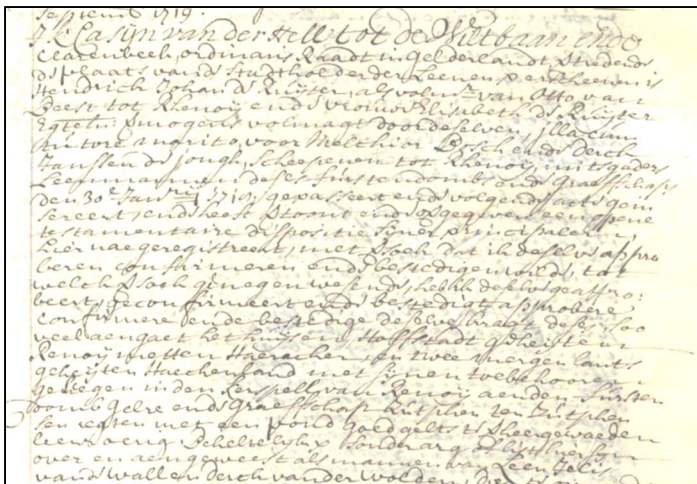 Septemb 1719.
Casijn van der Hell tot de Wiltbaan ende
Clarenbeek, ordinaris Raadt in Gelderlandt Bledende
de plaats vande Stadtholder der Leenen verscheenen is
Hendrick Johan de Ruijter, als volm. van Otto van
Beest tot Rhenoij ende vrouw Elisabeth de Ruijter
Egtel: vermogens volmagt door deselven, illa cum
tutore marito, voor Melchior Bosch ende Derck
Janssen de jongh, Scheepenen tot Rhenoij mitsgaders
Leenmannen deses furstendombs ende Graefschaps
den 30e Janu. 1719, gepasseert ende volgende acte geïn
sereert, ende heeft vertoont ende overgegeven een opene
testamentaire dispositie sijner principalen,
hier nae geregistreert, met versoek dat ik deselve appro
beren confirmeren ende bestedigen wilde, tot
welck versoek genegen wesende, hebbe deselve geappro:
beert, geconfirmeert ende bestedigt, approbere
confirmere ende bestedige deselve kragt deses soo
veel aengaet het huijsen, Hoffstadt geheiten
Renoij metten Haerachen, en twee mergen lants
geheijten Huechenland met sijnen toebehooren
gelegen in den Kerspell van Renoij aenden Fursten
domb Gelre ende Graefschap Zutphen ten Zutphen
sen regten met een pond goed gelts te Heergewaeden
leenroerig, Beheltelijk sonder arg of list hier sijn
over en aengeweest als mannen van Leen Jelis
vande Wall en Derck vander Wolden,